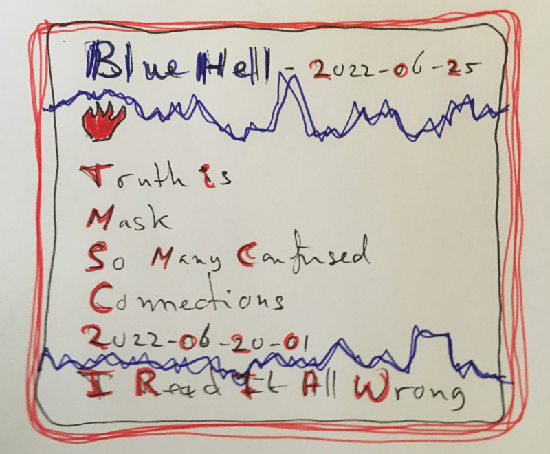 Blue Hell - 2022-06-25
Truth is
Mask
So Many Confused
Connections
2022-06-20-01
I Read It All Wrong